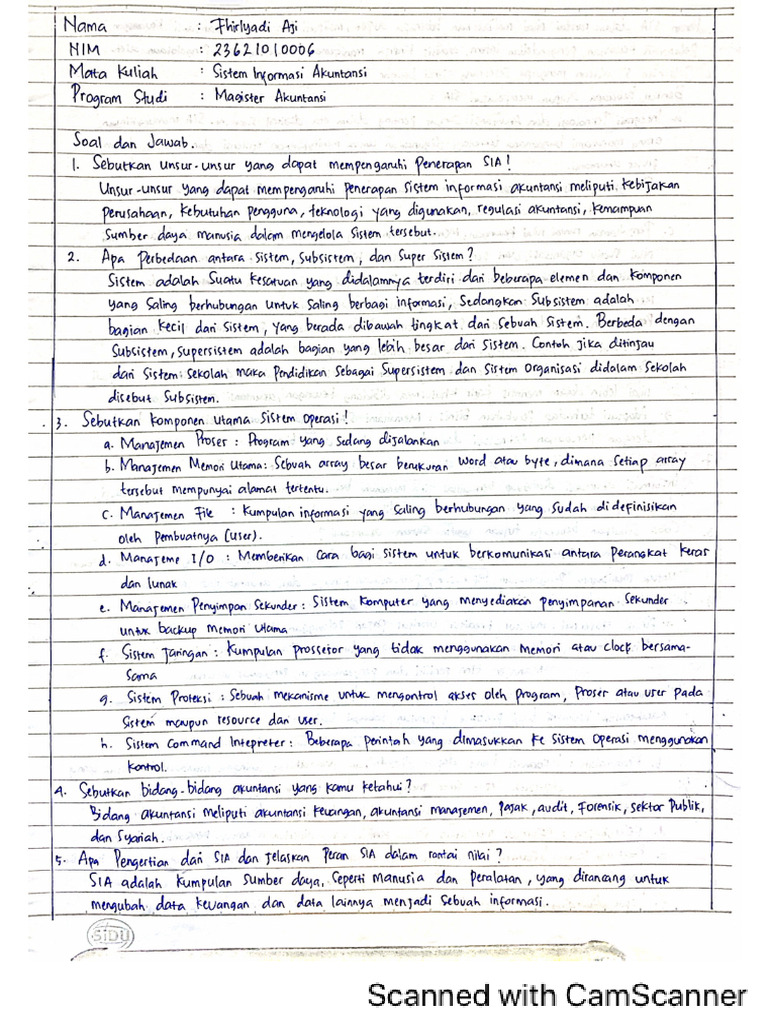 Nama : Fhirlyadi Aji
NIM : 23621010006
Mata Kuliah : Sistem Informasi Akuntansi
Program Studi : Magister Akuntansi
Soal dan Jawab.
1. Sebutkan Unsur-unsur yang dapat mempengaruhi Penerapan SIA!
Unsur-unsur yang dapat mempengaruhi Penerapan Sistem informasi akuntansi meliputi kebijakan
perusahaan, kebutuhan pengguna, teknologi yang digunakan, regulasi akuntansi, kemampuan
Sumber daya manusia dalam mengelola Sistem tersebut.
2. Apa Perbedaan antara sistem, subsistem, dan Super Sistem?
Sistem adalah Suatu kesatuan yang didalamnya terdiri dari beberapa elemen dan komponen
yang Saling berhubungan untuk saling berbagi informasi, Sedangkan Subsistem adalah
bagian kecil dari sistem, yang berada dibawah tingkat dari Sebuah Sistem. Berbeda dengan
Subsistem, supersistem adalah bagian yang lebih besar dari sistem. Contoh jika ditinjau
dari Sistem: sekolah maka Pendidikan Sebagai Supersistem dan Sistem Organisasi didalam Sekolah
disebut Subsistem.
3. Sebutkan komponen Utama Sistem Operasi!
a. Manajemen Proser : Program yang sedang dijalankan
b. Manajemen Memori Utama: Sebuah array besar berukuran Word atau byte, dimana Setiap array
tersebut mempunyai alamat tertentu.
c. Manajemen File : Kumpulan informasi yang saling berhubungan yang sudah di definisikan
oleh Pembuatnya (User).
d. Manajeme I/O : Memberikan Cara bagi sistem untuk berkomunikasi antara Perangkat keras
dan lunak
e. Manajemen Penyimpan Sekunder : Sistem Komputer yang menyediakan penyimpanan Sekunder
untuk backup memori Utama
f. Sistem Jaringan : Kumpulan prossetor yang tidak menggunakan memori atau clock bersama-
Sama
g. Sistem Proteksi : Sebuah mekanisme untuk mengontrol akses oleh program, Proser atau user pada
Sistem maupun resource dari user.
h. Sistem Command Intepreter : Beberapa perintah yang dimasukkan ke sistem operasi menggunakan
kontrol.
4. Sebutkan bidang-bidang akuntansi yang kamu ketahui?
Bidang akuntansi meliputi akuntansi keuangan, akuntansi manajemen, Pajak, audit, Forensik, sektor Publik,
dan Syariah.
5. Apa Pengertian dari SIA dan jelaskan Peran SIA dalam rantai nilai?
SIA adalah kumpulan Sumber daya, seperti Manusia dan Peralatan, yang dirancang untuk
mengubah data keuangan dan data lainnya menjadi Sebuah informasi.
SIDU
Scanned with CamScanner